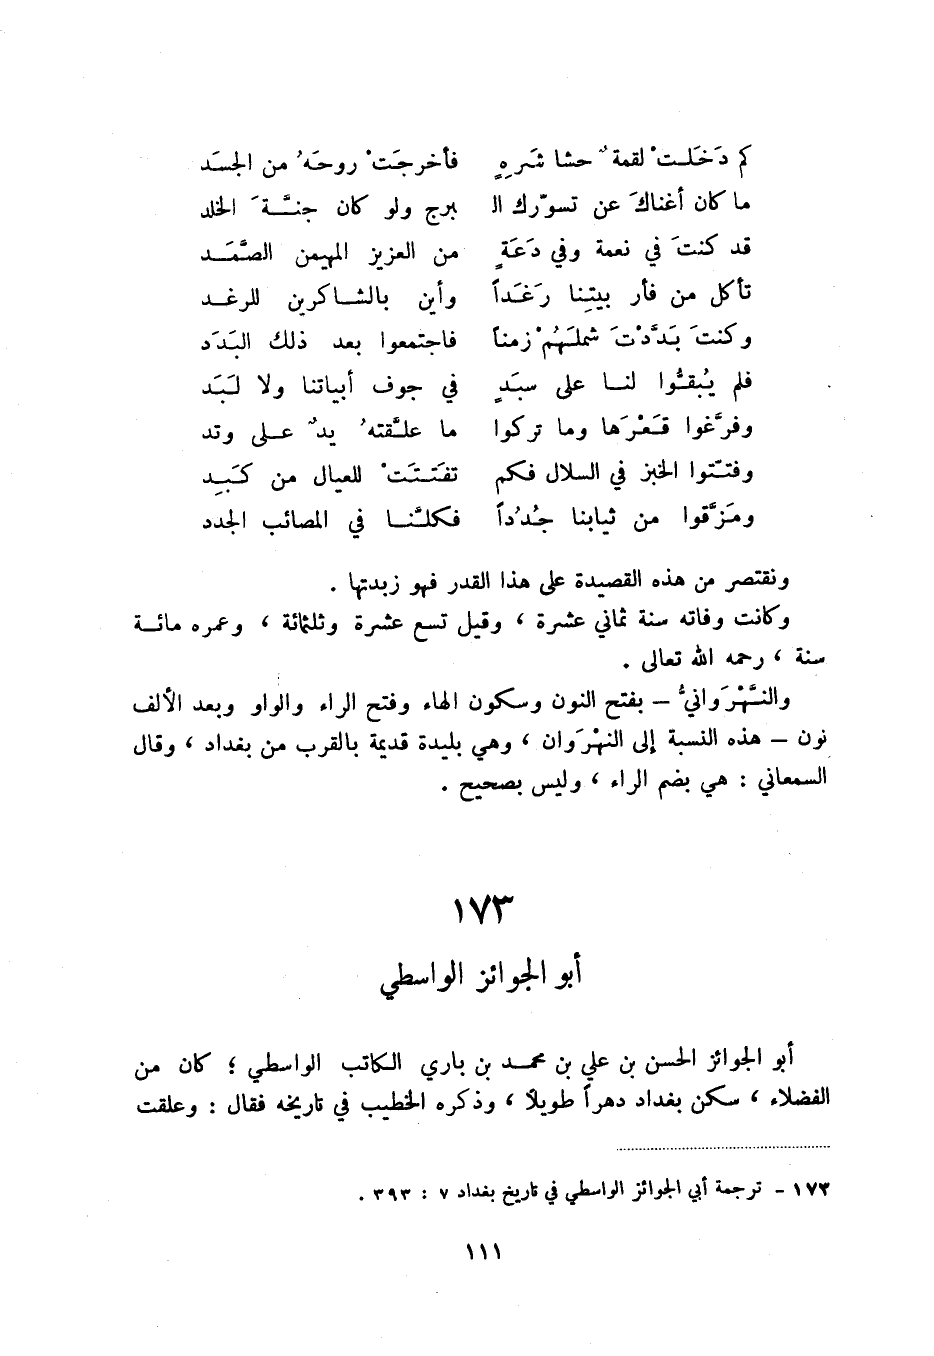 كم دَخَلتْ لقمةٌ حشا شَرِهٍ فأخرجَتْ روحَهُ من الجسَد
ما كان أغناكَ عن تسوّرك الـ برج ولو كان جنَّةَ الخلد
قد كنتَ في نعمة وفي دَعَةٍ من العزيز المهيمن الصَّمَد
تأكل من فأر بيتِنا رَغَداً وأين بالشاكرين للرغد
وكنتَ بَدَّدْتَ شملَهُمْ زمناً فاجتمعوا بعد ذلك البَدَد
فلم يُبقُّوا لنا على سبَدٍ في جوف أبياتنا ولا لَبَد
وفرَّغوا قَعْرَها وما تركوا ما علَّقتهُ يدٌ على وتد
وفتّتوا الخبز في السلال فكم تفَتَّتَتْ للعيال من كَبِد
ومَزَّقوا من ثيابنا جُدُداً فكلُّنا في المصائب الجدد
ونقتصر من هذه القصيدة على هذا القدر فهو زبدتها .
وكانت وفاته سنة ثماني عشرة ، وقيل تسع عشرة وثلثمائة ، وعمره مائة
سنة ، رحمه الله تعالى .
والنَّهْرَوانيُّ – بفتح النون وسكون الهاء وفتح الراء والواو وبعد الألف
نون – هذه النسبة إلى النهْرَوان ، وهي بليدة قديمة بالقرب من بغداد ، وقال
السمعاني : هي بضم الراء ، وليس بصحيح .
١٧٣
أبو الجوائز الواسطي
أبو الجوائز الحسن بن علي بن محمد بن باري الكاتب الواسطي ؛ كان من
الفضلاء ، سكن بغداد دهراً طويلاً ، وذكره الخطيب في تاريخه فقال : وعلقت
١٧٣ – ترجمة أبي الجوائز الواسطي في تاريخ بغداد ٧ : ٣٩٣ .
١١١